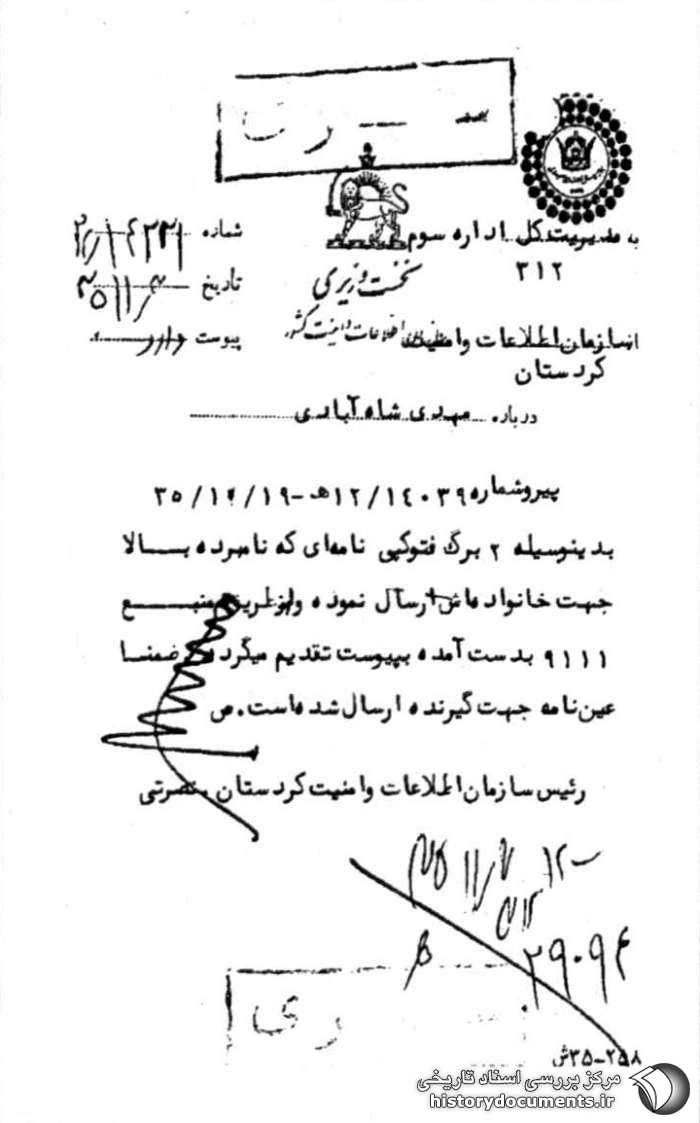 سری
به مدیریت کل اداره سوم
۳۱۲
شماره
نخست وزیری
تاریخ
سازمان اطلاعات و امنیت کشور
پیوست دارد
از سازمان اطلاعات و امنیت
کردستان
درباره مهدی شاه آبادی
پیرو شماره ۱۲/۱۴۰۳۹ه‍ -
بدینوسیله ۲ برگ فتوکپی نامه‌ای که نامبرده بالا
جهت خانواده‌اش ارسال نموده و از طریق منبع
۹۱۱۱ بدست آمده بپیوست تقدیم میگردد ضمنا
عین نامه جهت گیرنده ارسال شده‌است. ص
رئیس سازمان اطلاعات و امنیت کردستان . نصرتی
۲۹۰۹۴
سری
۳۵-۲۵۸ش
مرکز بررسی اسناد تاریخی
historydocuments.ir